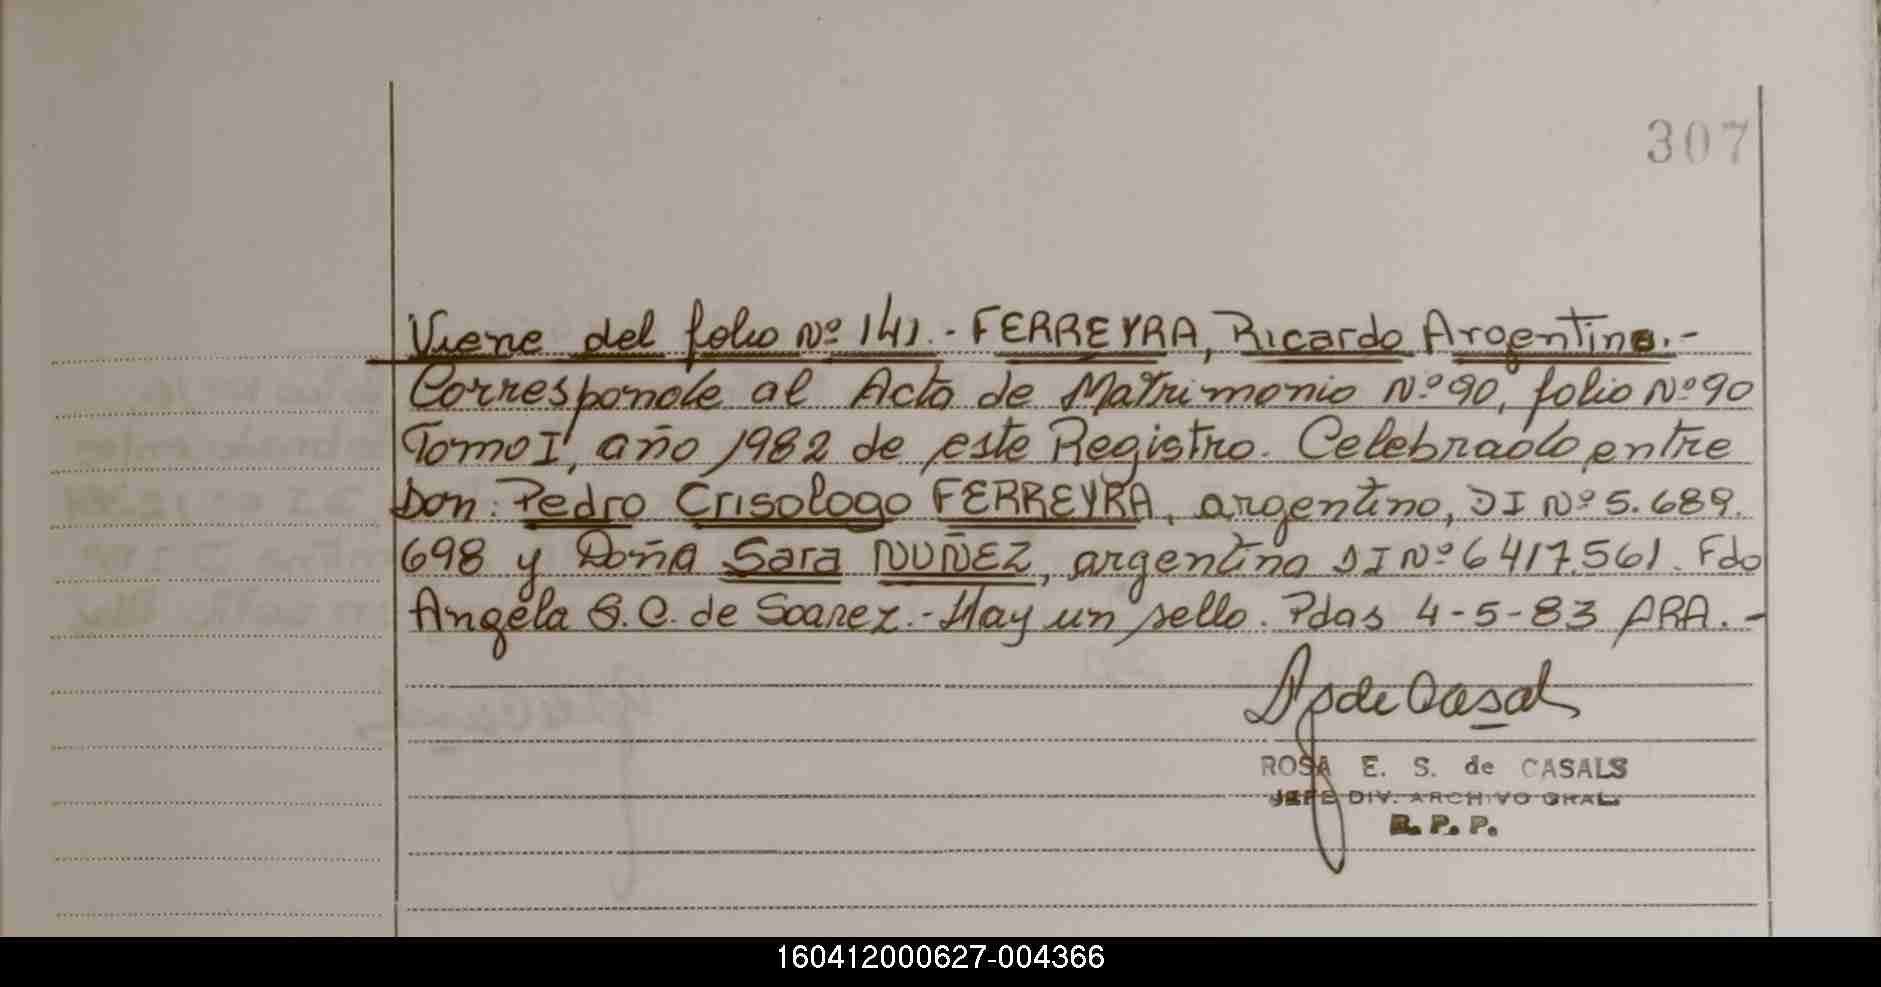 307
Viene del folio Nº 141.- FERREYRA, Ricardo Argentino.-
Corresponde al Acta de Matrimonio Nº 90, folio Nº 90
Tomo I, año 1982 de este Registro. Celebrado entre
Don: Pedro Crisologo FERREYRA, argentino, DI Nº 5.689.
698 y Doña Sara NUÑEZ, argentina DI Nº 6417.561. Fdo
Angela S. C. de Soarez.- Hay un sello. Pdas 4-5-83 ARA.-
de Casals
ROSA E. S. de CASALS
JEFE DIV. ARCHIVO GRAL.
R. P. P.
160412000627-004366